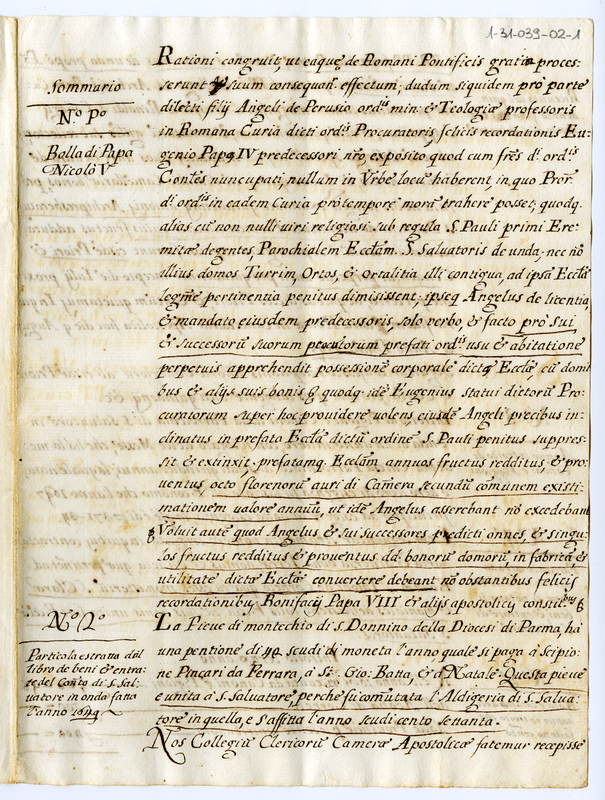 1-31-039-02-1
Sommario
N.º Pº
Bolla di Papa
Nicolò V
Rationi congruit, ut eaquę de Romani Pontificis gratia proces:
serunt suum consequan. effectum; dudum siquidem pro parte
dilecti filij Angeli de Perusio ord.is min. & Teologiæ professoris
in Romana Curia dicti ord.is Procuratoris, felicis recordationis Eu-
genio Papę IV predecessori nro, exposito quod cum frēs d.i ord.is
Contes nuncupati, nullum in Vrbe locū haberent, in quo Pror.
d.i ord.is in eadem Curia pro tempore morā trahere posset, quodq.
alias cū non nulli viri religiosi sub regula S. Pauli primi Ere-
mitæ degentes, Parochialem Ecclam. S. Salvatoris de unda, nec nō
illius domos Turrim, Ortos, & ortalitia illi contigua, ad ipsā Ecclā
legme pertinentia penitus dimisissent; ipseq. Angelus de licentia,
& mandato eiusdem predecessoris, solo verbo, & facto pro sui
& successorū suorum prefati ord.is usu & abitatione
perpetuis apprehendit possesionē corporale dictę Ecclæ cū domi
bus & alijs suis bonis quodq. idē Eugenius statui dictorū Pro-
curatorum super hoc providere volens, eiusdē Angeli precibus in-
clinatus in prefata Ecclā dictū ordinē S. Pauli penitus suppres-
sit & extinxit, prefatamq. Ecclam, annuos fructus redditus, & pro-
uentus, octo florenorū auri di Camera secundū comunem existi-
mationem ualore annuū, ut idē Angelus asserebant nō excedebant
Voluit autē quod Angelus & sui successores predicti omnes, & singu-
los fructus redditus & prouentus dd. bonorū domorū, in fabricā &
utilitate dictæ Ecclæ convertere debeant nō obstantibus felicis
recordationibus Bonifacij Papa VIII & alijs apostolicis constit.bus
N.º 2º
Particola estratta dal
libro de beni & entra-
te del Conto di S. Sal-
uatore in onda fatta
l'anno 1649
La Pieue di montechio di S. Donnino della Diocesi di Parma, hà
una pentione di 42 scudi di moneta l'anno quale si paga à Scipio-
ne Pincari da Ferrara, à S. Gio: Batta, & à Natale. Questa pieue
e unita à S. Saluatore, perche fù comutata l'Aldigeria di S. Salua-
tore in quella, e s'affitta l'anno scudi cento settanta.
Nos Collegiū Clericorū Cameræ Apostolicæ fatemur recepisse